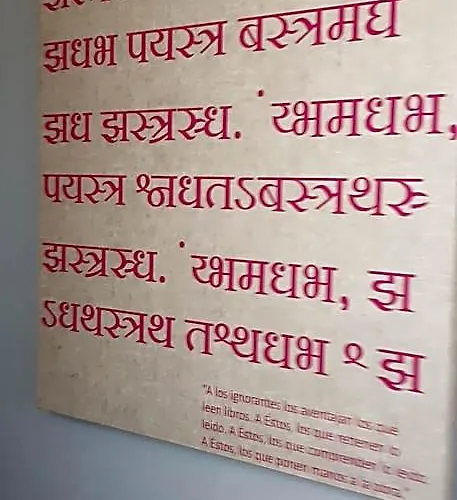 झधभ पयस्त्र बस्त्रमघ
झध झस्त्रस्ध. ֹय्भमधभ,
पयस्त्र श्नधतऽबस्त्रथरु
झस्त्रस्ध. ֹय्भमधभ, झ
ऽधथस्त्रथ तश्थधभ श् झ
"A los ignorantes los aventajan los que
leen libros. A Éstos, los que retienen lo
leído. A Éstos, los que comprenden lo leído.
A Éstos, los que ponen manos a la obra."